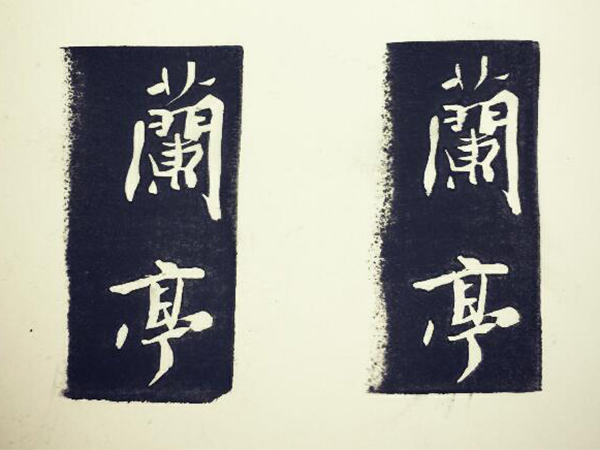 蘭亭
蘭亭